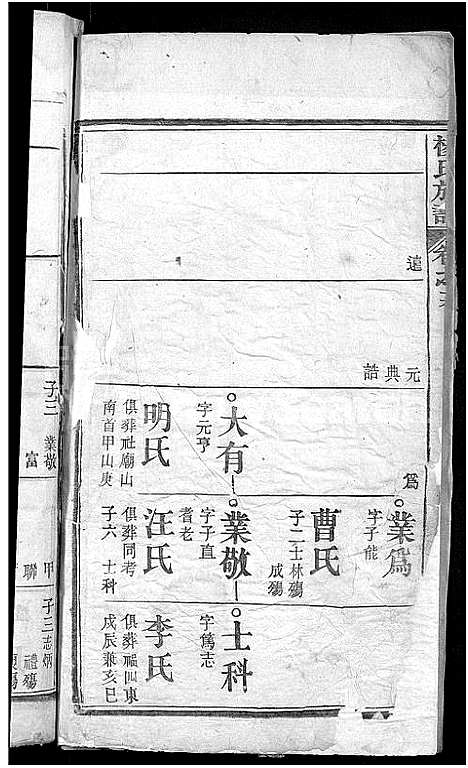 楊氏族譜
卷之
遠
元典誥
為
業為
字子能
曹氏
子二士林殤
成殤
大有
字元亨
明氏
俱葬社廟山
南首甲山庚
業敬
字子直
耆老
汪氏
俱葬同考
子六 士科
士科
字篤志
李氏
俱葬福四東
戊辰兼亥巳
子三 業敬
富
甲
聯
子三志炳
禮殤